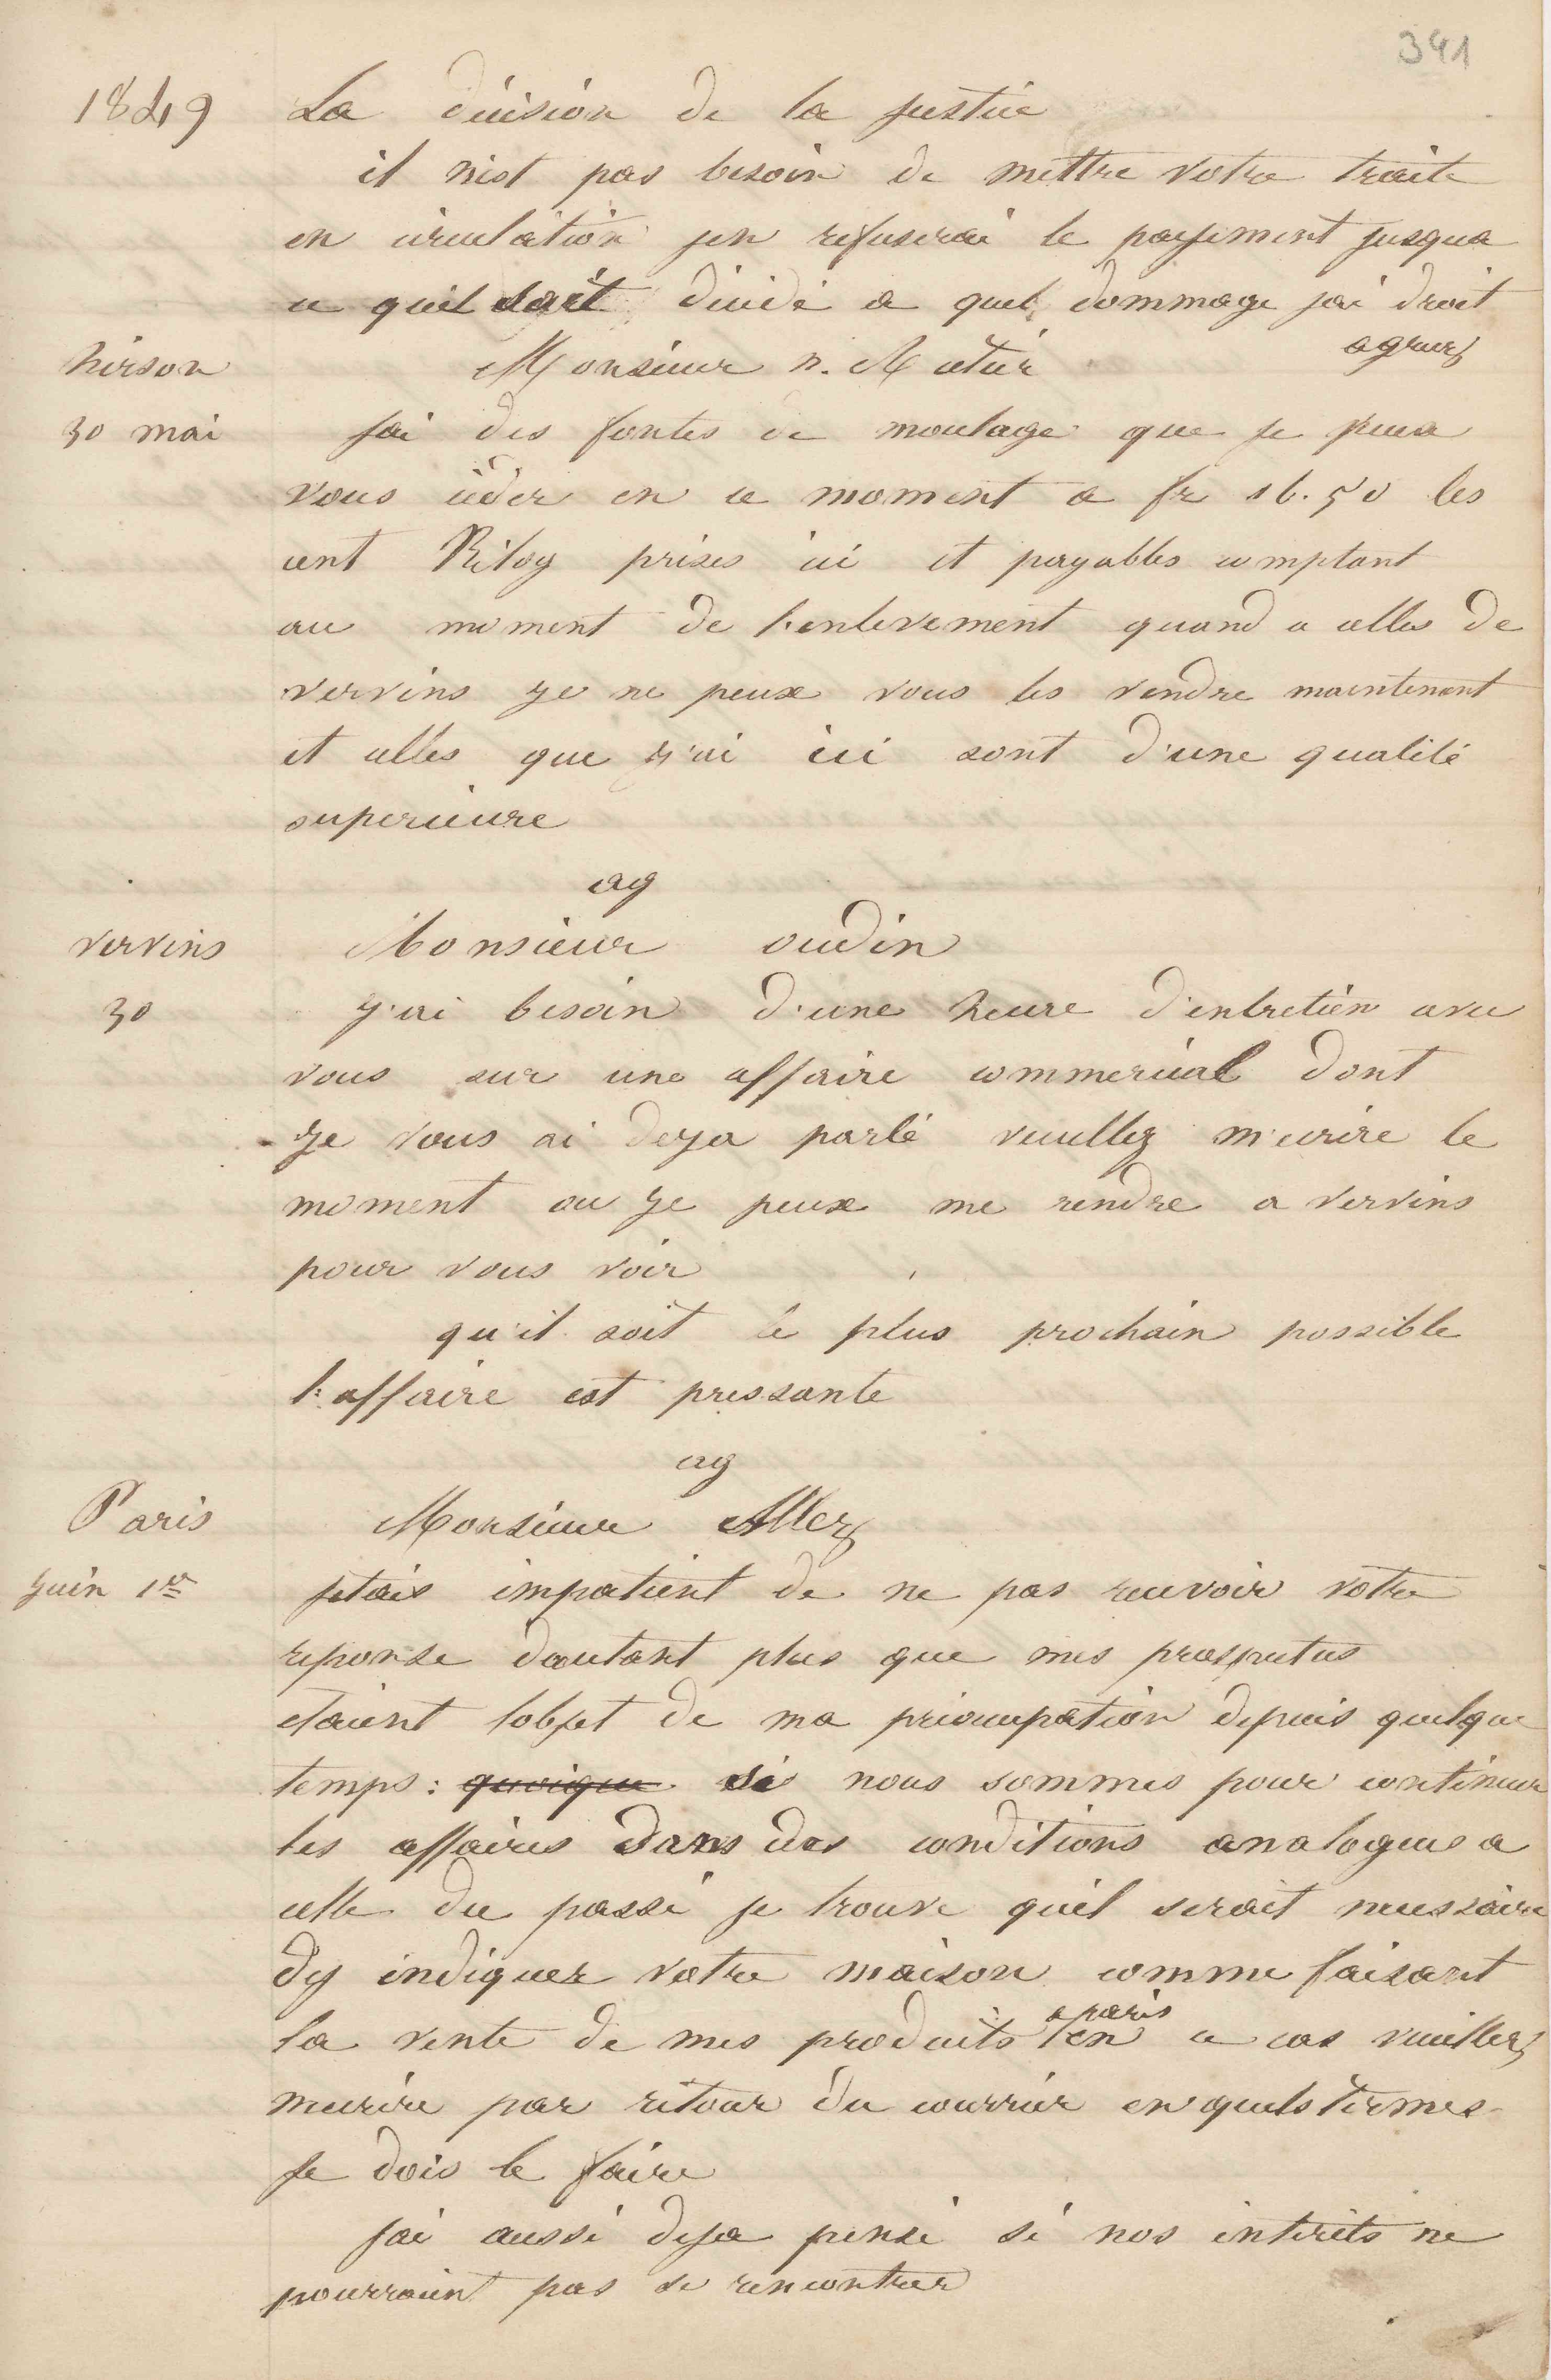 341
1849 La décision de la justice
il nest pas besoin de mettre votre traite
en circulation jen refuserai le payement jusqua
ce quil soit décidé a quel dommage jai droit
agreez
hirson Monsieur n. Matiè
30 mai jai des fontes de moulage que je peux
vous cèder en ce moment a fr 16.50 les
cent Kilog prises ici et payables comptant
au moment de l'enlevement quand a celles de
vervins je ne peux vous les vendre maintenant
et celles que j'ai ici sont d'une qualité
superieure
ag
vervins Monsieur oudin
30 j'ai besoin d'une heure d'entretien avec
vous sur une affaire commercial dont
je vous ai deja parlé veullez m'ecrire le
moment ou je peux me rendre a vervins
pour vous voir
qu'il soit le plus prochain possible
l'affaire est pressante
ag
Paris Monsieur Allez
juin 1er jetais impatient de ne pas recevoir votre
reponse dautant plus que mes prospectus
etaient lobjet de ma préocupation depuis quelque
temps : quoique si nous sommes pour continuer
les affaires dans des conditions analogues a
celle du passé je trouve quil serait necessaire
dy indiquer votre maison comme faisant
la vente de mes produits a paris en ce cas veuillez
mecrire par retour du courrier en quels termes
je dois le faire
jai aussi deja pensé si nos interêts ne
pourraient pas se rencontrer